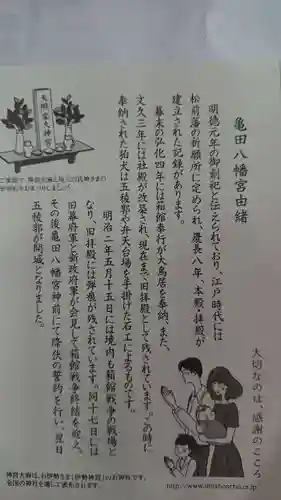 亀田八幡宮由緒
明徳元年の御創祀と伝えられており、江戸時代には
松前藩の祈願所に定められ、慶長八年、本殿・拝殿が
建立された記録があります。
幕末の弘化四年には箱館奉行が大鳥居を奉納、また、
文久三年には社殿が改築され、現在まで旧拝殿として残されています。この時に
奉納された狛犬は五稜郭や弁天台場を手掛けた石工によるものです。
明治二年五月十五日には境内も箱館戦争の戦場と
なり、旧拝殿には弾痕が残されています。同十七日には
旧幕府軍と新政府軍が会見して箱館戦争終結を迎え、
その後亀田八幡宮神前にて降伏の誓約を行い、翌日
五稜郭が開城となりました。
大切なのは、感謝のこころ
天照皇大神宮